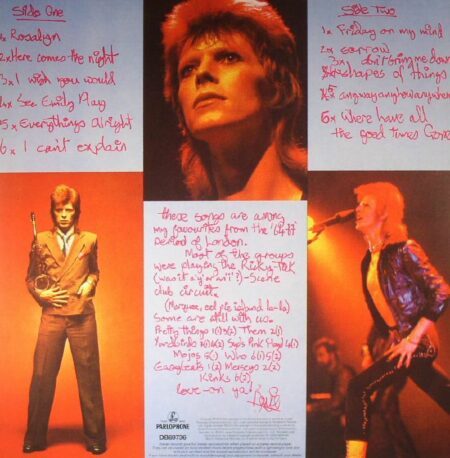 Side One
1x Rosalyn
2x Here comes the night
3x I wish you would
4x See Emily Play
5x Everythings alright
6x I can't explain
Side Two
1x Friday on my mind
2x sorrow
3x don't bring me down
shapes of things
anyway anyhow anywhere
6x Where have all
the good times Gone
these songs are among
my favourites from the '64-67
period of London.
Most of the groups
were playing the Ricky-Tick
(was it a 'y' or 'i'?)-Scene
club circuit.
(Marquee, eel pie island la-la)
Some are still with us.
Pretty things 1(1)3(2) Them 2(1)
Yardbirds 3(1)4(2) Syd's Pink Floyd 4(1)
Mojos 5(1) Who 6(1)5(2)
Easybeats 1(2) Merseys 2(2)
Kinks 6(2)
love-on ya!
PARLOPHONE